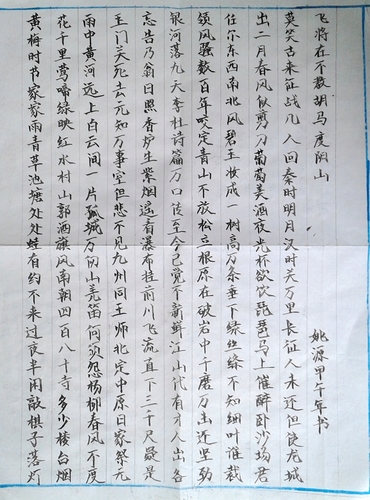 黄梅时节家家雨青草池塘处处蛙有约不来过夜半闲敲棋子落灯
花千里莺啼绿映红水村山郭酒旗风南朝四百八十寺多少楼台烟
雨中黄河远上白云间一片孤城万仞山羌笛何须怨杨柳春风不度
玉门关死去元知万事空但悲不见九州同王师北定中原日家祭无
忘告乃翁日照香炉生紫烟遥看瀑布挂前川飞流直下三千尺疑是
银河落九天李杜诗篇万口传至今已觉不新鲜江山代有才人出各
领风骚数百年咬定青山不放松立根原在破岩中千磨万击还坚劲
任尔东西南北风碧玉妆成一树高万条垂下绿丝绦不知细叶谁裁
出二月春风似剪刀葡萄美酒夜光杯欲饮琵琶马上催醉卧沙场君
莫笑古来征战几人回秦时明月汉时关万里长征人未还但使龙城
飞将在不教胡马度阴山
姚源甲午年书